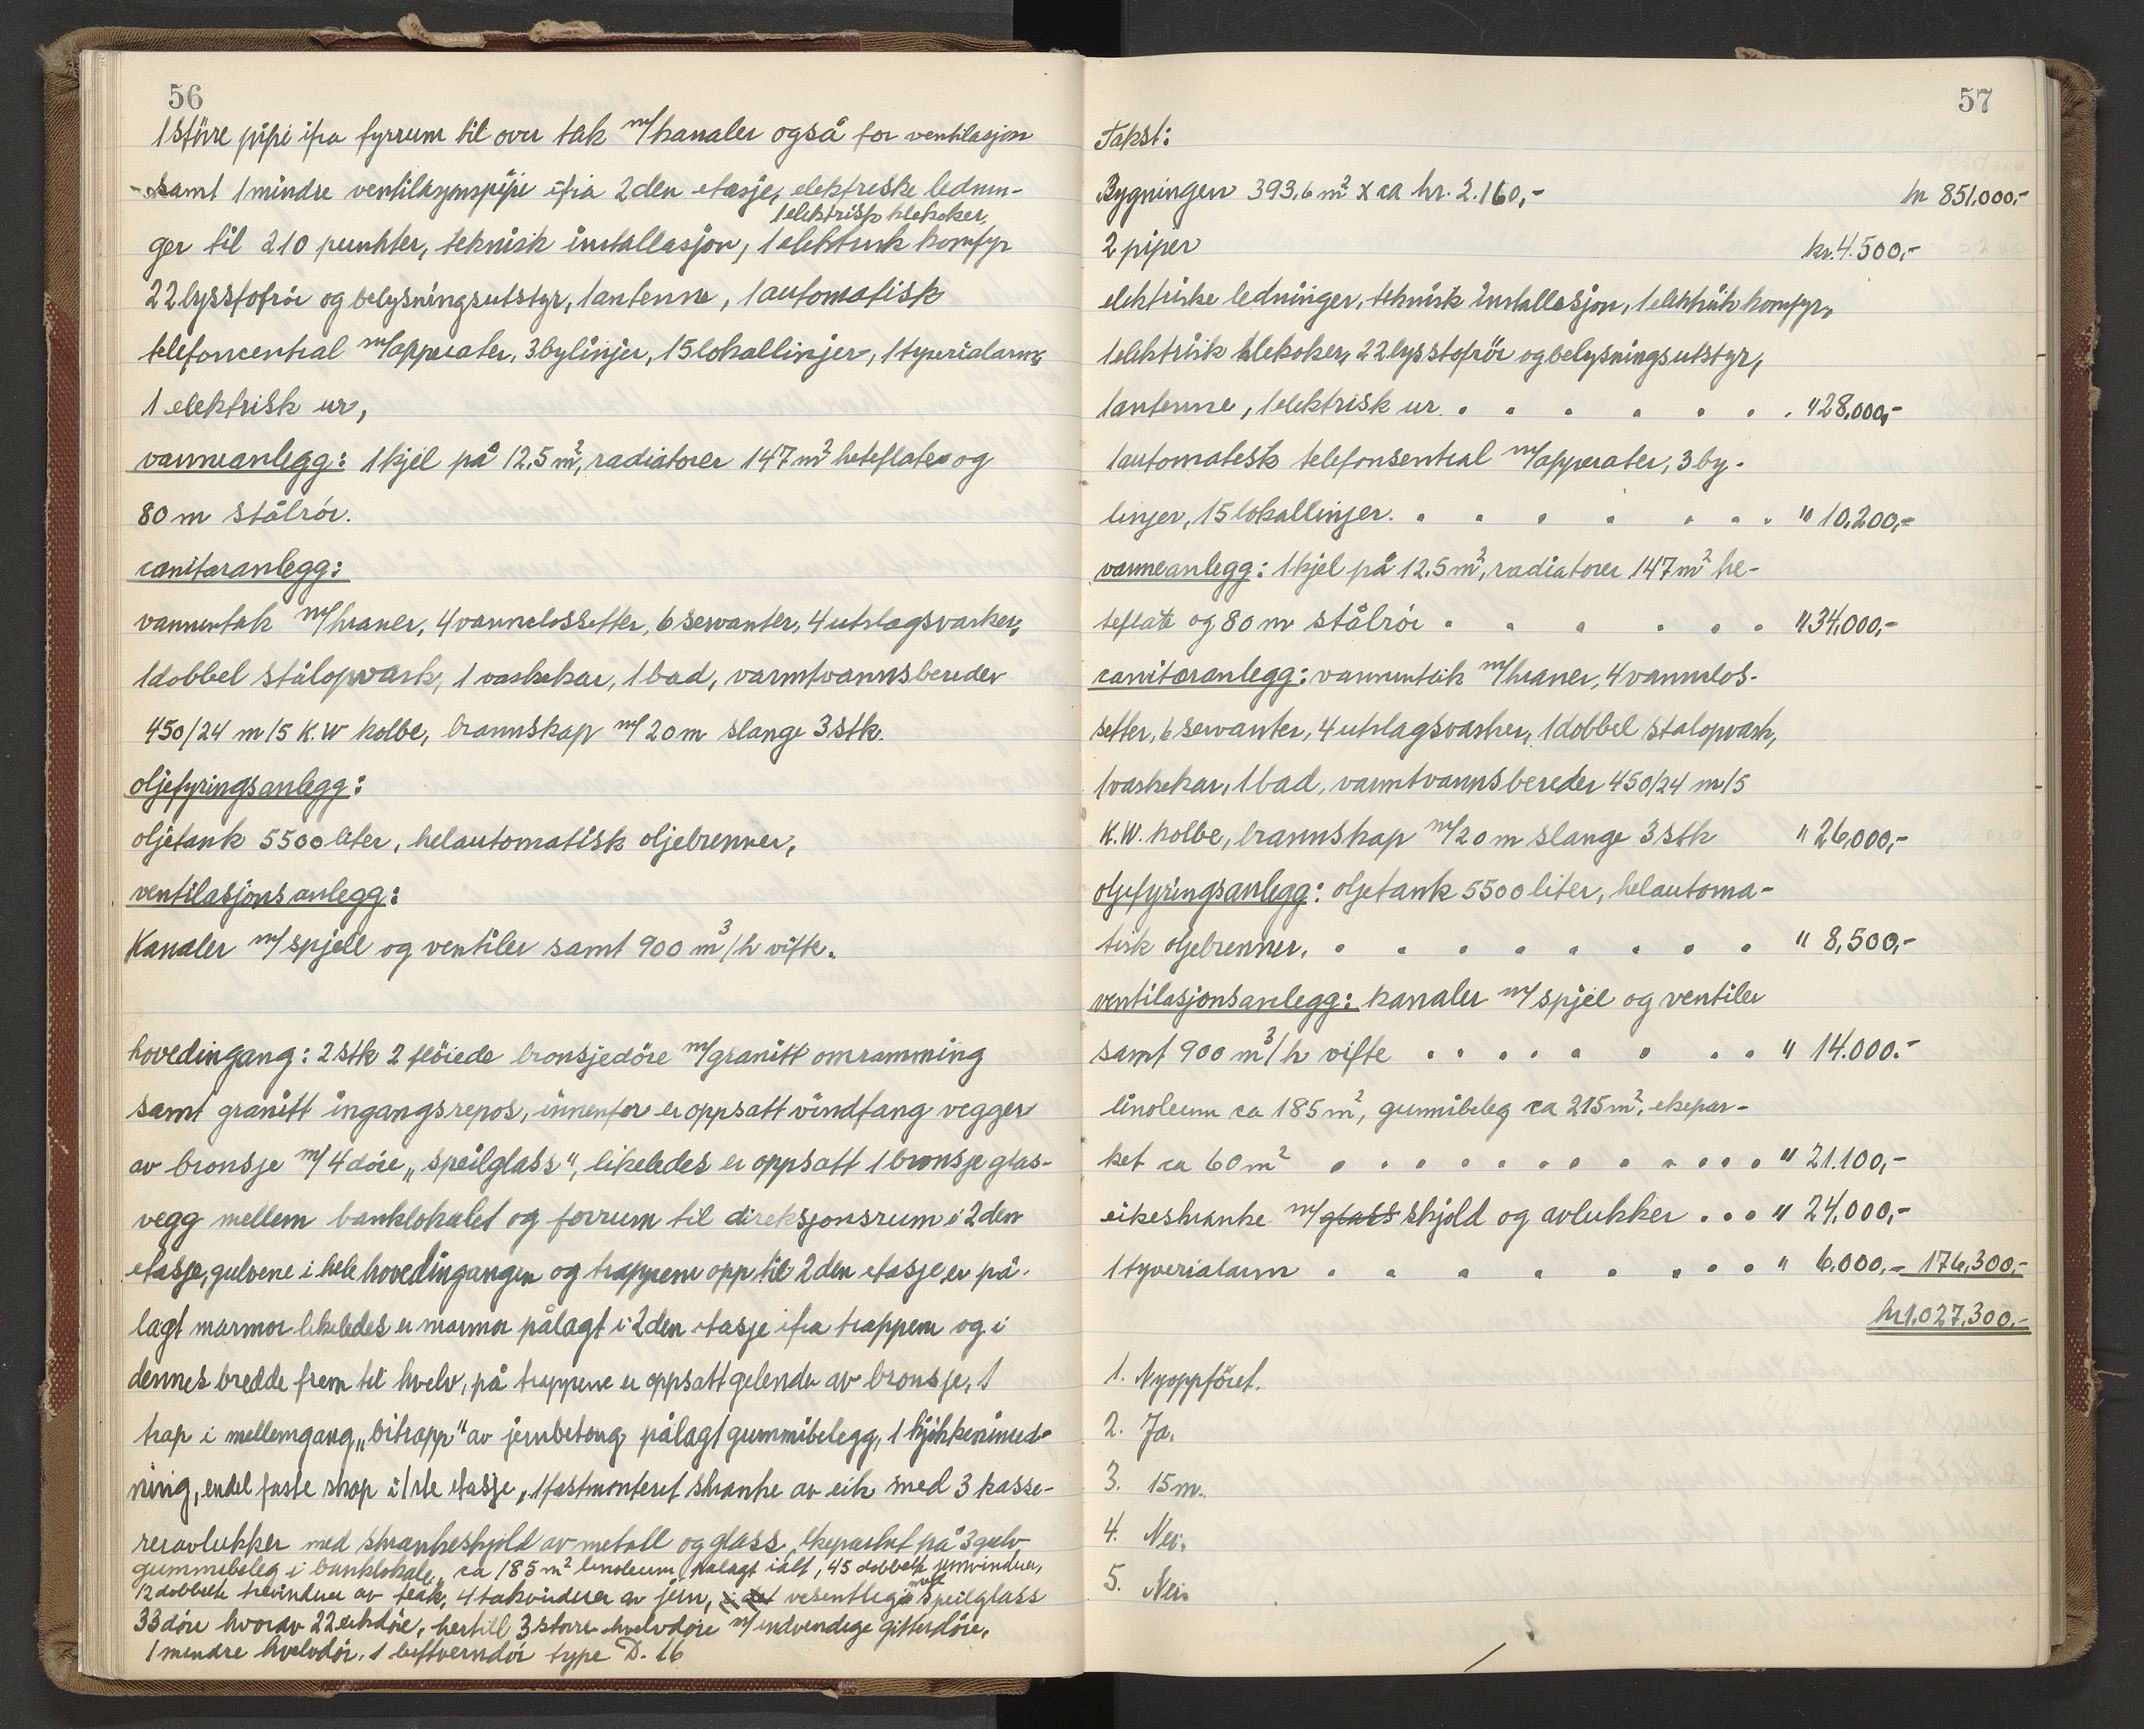 56
1 større pipe ifra fyrrum til over tak m/kanaler også for ventilasjon
samt 1 mindre ventilasjonspipe ifra 2den etasje, elektriske lednin-
1 elektrisk klekoker,
ger til 210 punkter, teknisk installasjon, 1 elektrisk komfyr
22 lysstofrör og belysningsutstyr, 1 antenne, 1 automatisk
telefoncentral m/apperater, 3 bylinjer, 15 lokallinjer, 1 tyverialarm,
1 elektrisk ur,
varmeanlegg: 1 kjel på 12,5 m², radiatorer 147 m² heteflate og
80 m stålrör.
sanitæranlegg:
vanninntak m/kraner, 4 vannclossetter, 6 servanter, 4 utslagsvasker,
1 dobbel stålopvask, 1 vaskekar, 1 bad, varmtvannsbereder
450/24 m/5 K.W kolbe, brannskap m/20 m slange 3 stk.
oljefyringsanlegg:
oljetank 5500 liter, helautomatisk oljebrenner,
ventilasjonsanlegg:
Kanaler m/spjell og ventiler samt 900 m³/h vifte.
hovedingang: 2 stk 2 flöiede bronsjedöre m/granitt omramming
samt granitt ingangsrepos, innenfor er oppsatt vindfang vegger
av bronsje m/4 döre „speilglass", likeledes er oppsatt 1 bronsje glas-
vegg mellem banklokalet og forrum til direksjonsrum i 2den
etasje, gulvene i hele hovedingangen og trappene opp til 2den etasje er på-
lagt marmor likeledes er marmor pålagt i 2den etasje ifra trappene og i
dennes bredde frem til hvelv, på trappene er oppsatt gelender av bronsje, 1
trap i mellemgang „bitrapp" av jernbetong pålagt gummibelegg, 1 kjökkeninred-
ning, endel faste skap i 1ste etasje, 1 fastmontert skranke av eik med 3 kasse-
reravlukker med skrankeskjold av metall og glass, ekeparket på 3 gulv
gummibeleg i banklokale, ca 185 m² linoleum palagt ialt, 45 dobbelte jernvinduer,
12 dobbelte trevinduer av teak, 4 takvinduer av jern, vesentlig med speilglass
33 döre hvorav 22 eikdöre, hertill 3 storre hvelvdöre m/indvendige gitterdöre,
1 mindre hvelvdör, 1 luftverndör type D. 16
57
Takst:
Bygningen 393,6 m² x ca kr. 2.160,- kr 851.000,-
2 piper kr. 4.500,-
elektriske ledninger, teknisk installasjon, 1 elektrisk komfyr,
1 elektrisk klekoker, 22 lysstofrör og belysningsutstyr,
1 antenne, 1 elektrisk ur . . . . . . . . " 28,000,-
1 automatisk telefonsentral m/apperater, 3 by-
linjer, 15 lokallinjer. . . . . . . . . " 10.200,-
varmeanlegg: 1 kjel på 12.5 m², radiatorer 147 m² he-
teflate og 80 m stålrör . . . . . . . " 34,000,-
sanitæranlegg: vanninntak m/kraner, 4 vannclos-
setter, 6 servanter, 4 utslagsvasker, 1 dobbel stalopvask,
1 vaskekar, 1 bad, varmtvannsbereder 450/24 m/5
K.W. kolbe, brannskap m/20 m slange 3 stk " 26,000,-
oljefyringsanlegg: oljetank 5500 liter, helautoma-
tisk oljebrenner. . . . . . . . . . " 8,500,-
ventilasjonsanlegg: kanaler m/spjel og ventiler
samt 900 m³/h vifte . . . . . . . . . " 14.000.-
linoleum ca 185 m², gummibeleg ca 215 m², ekepar-
ket ca 60 m² . . . . . . . . . . . . . " 21.100,-
eikeskranke m/glass skjold og avlukker . . . " 24,000,-
1 tyverialarm . . . . . . . . . " 6,000,- 176,300,-
kr 1.027.300,-
1. Nyoppfört.
2. Ja.
3. 15 m.
4. Nei.
5. Nei.